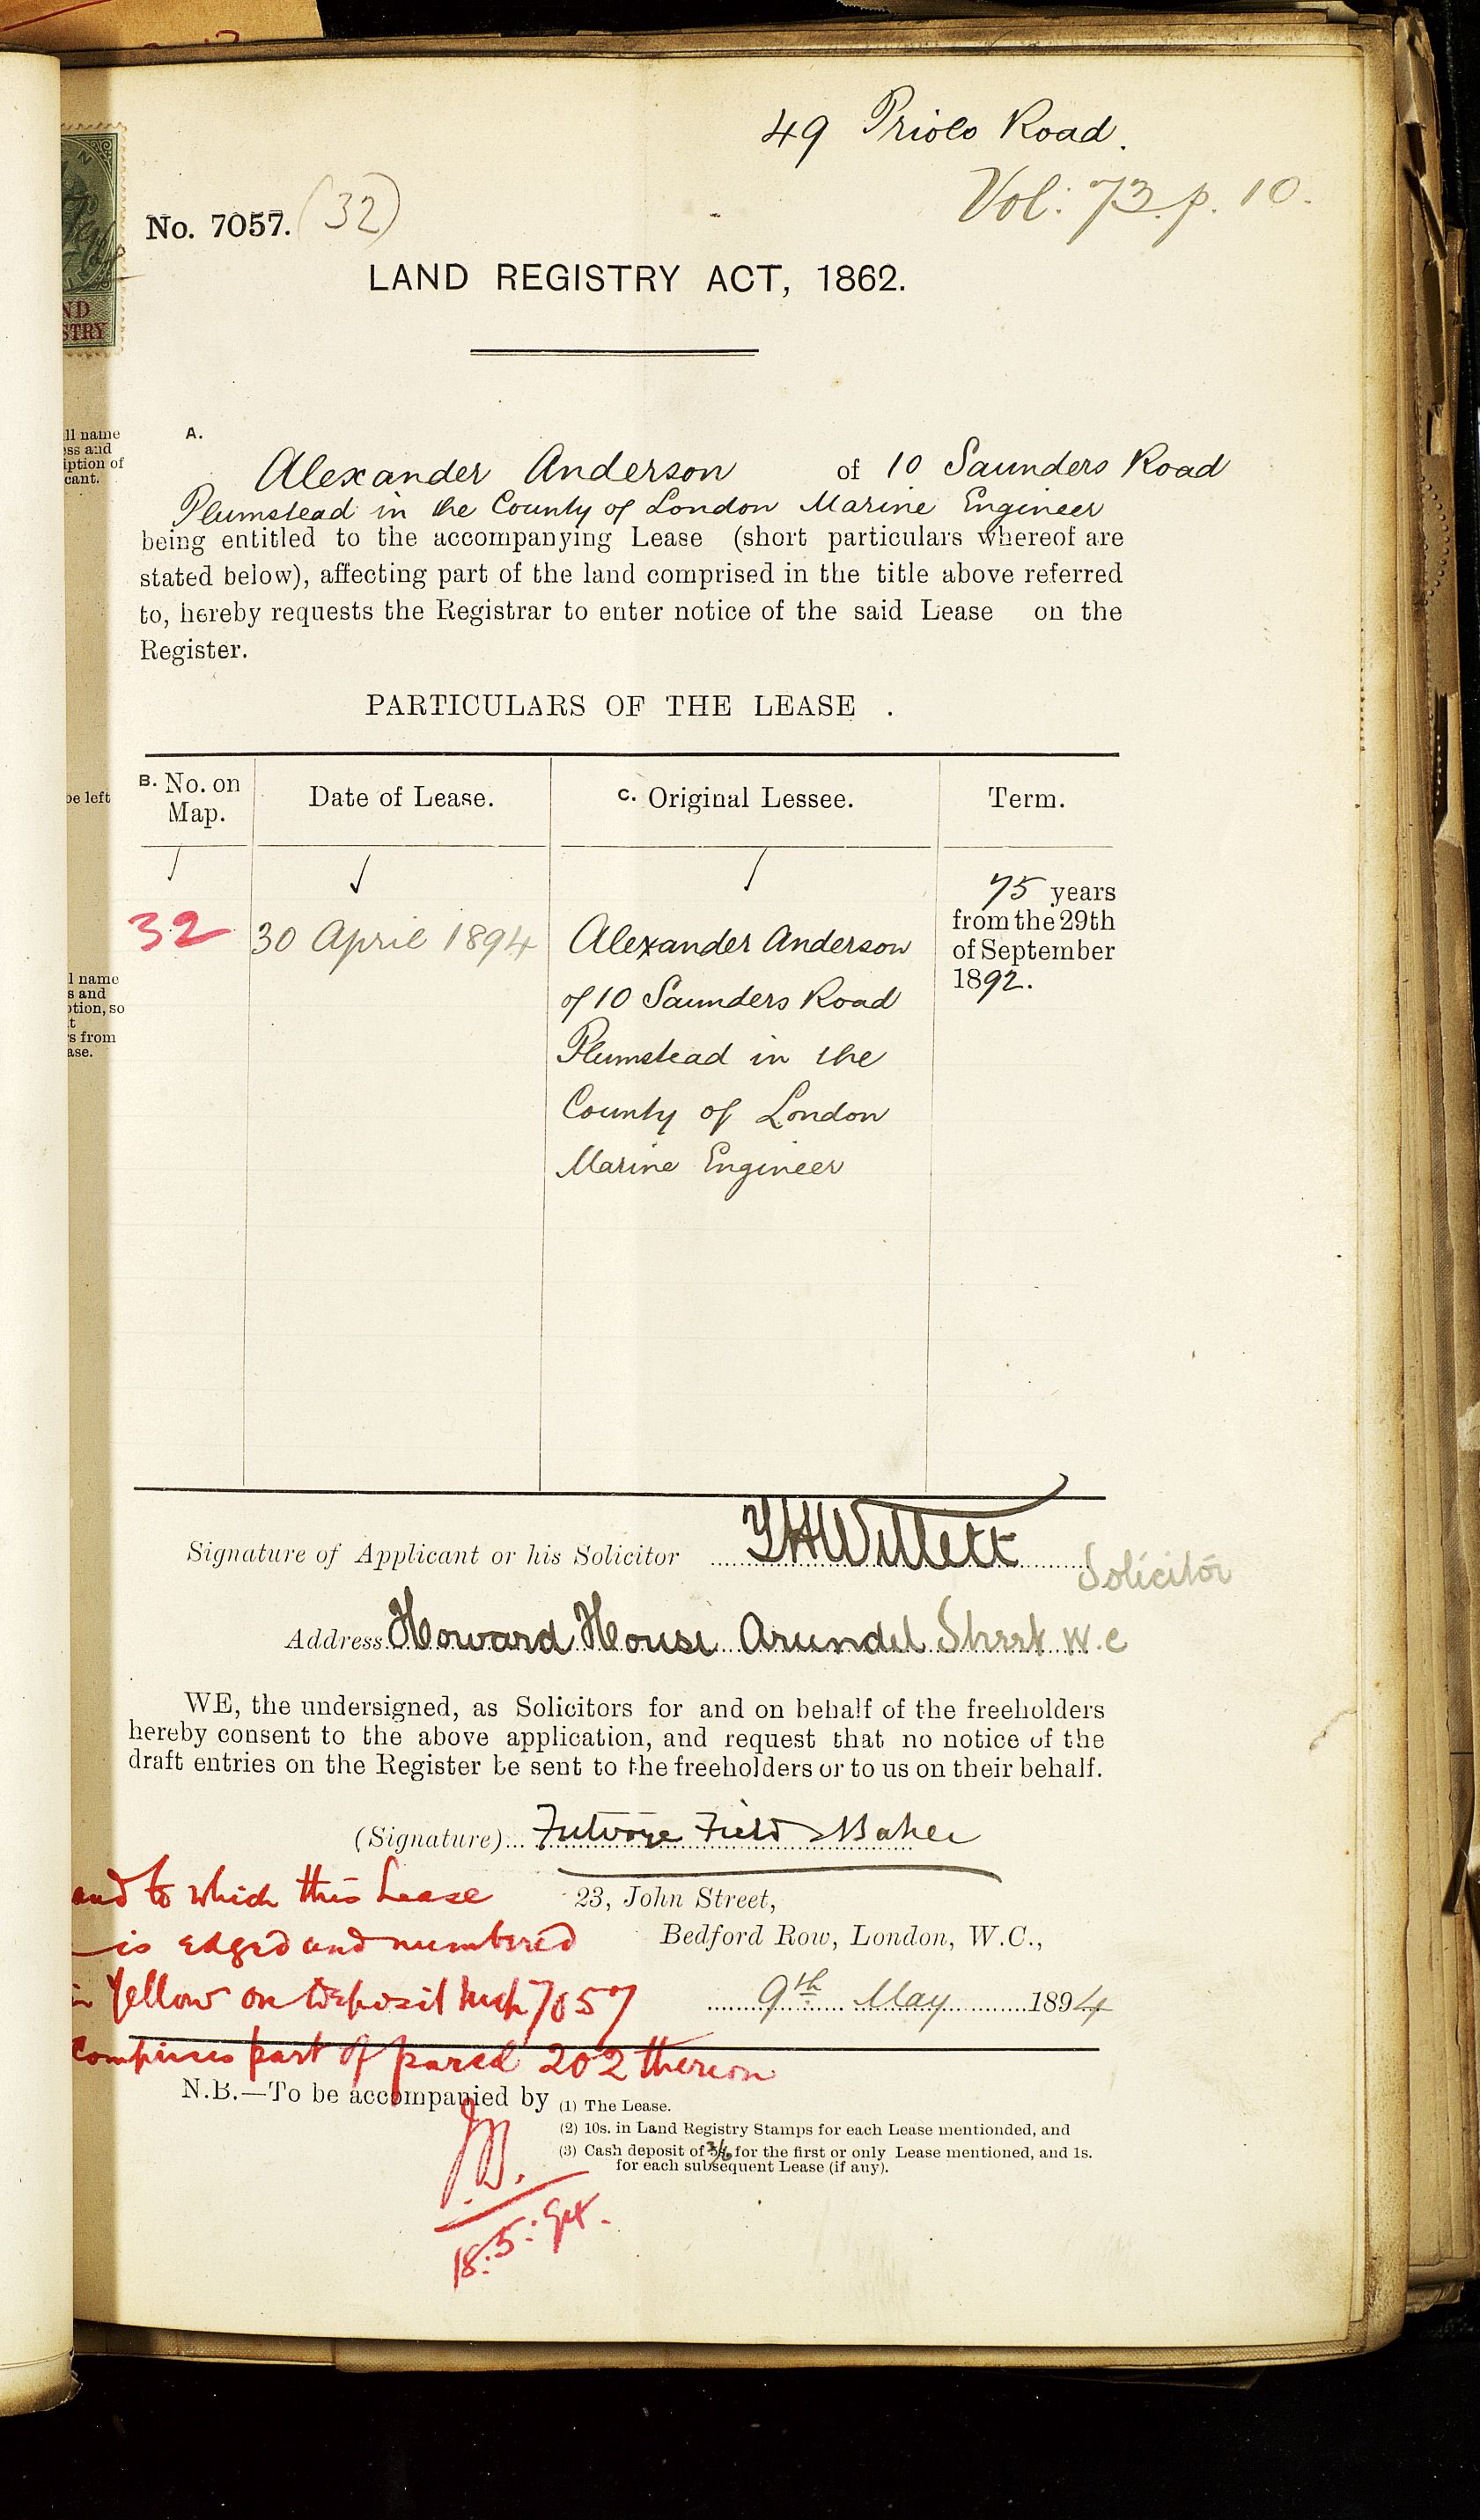 49 Priolo Road.
Vol: 73. p. 10.
No. 7057. (32)
LAND REGISTRY ACT, 1862.
ND
STRY
ll name
ess and
iption of
cant.
A.
Alexander Anderson of 10 Saunders Road
Plumstead in the County of London Marine Engineer
being entitled to the accompanying Lease (short particulars whereof are
stated below), affecting part of the land comprised in the title above referred
to, hereby requests the Registrar to enter notice of the said Lease on the
Register.
PARTICULARS OF THE LEASE .
B. No. on Map.
Date of Lease.
C. Original Lessee.
Term.
be left
32
30 April 1894
Alexander Anderson
of 10 Saunders Road
Plumstead in the
County of London
Marine Engineer
75 years
from the 29th
of September
1892.
l name
s and
ption, so
t
rs from
ase.
Signature of Applicant or his Solicitor Willett Solicitor
Address Howard House Arundel Street W.C
WE, the undersigned, as Solicitors for and on behalf of the freeholders
hereby consent to the above application, and request that no notice of the
draft entries on the Register be sent to the freeholders or to us on their behalf.
(Signature) Fulvoye Field & Baker
23, John Street,
Bedford Row, London, W.C.,
9th May 1894
and to which this Lease
is edged and numbered
in Yellow on deposit Map 7057
comprises part of parcel 202 thereon
18.5.94.
N.B.—To be accompanied by (1) The Lease.
(2) 10s. in Land Registry Stamps for each Lease mentionded, and
(3) Cash deposit of 3/6 for the first or only Lease mentioned, and 1s.
for each subsequent Lease (if any).